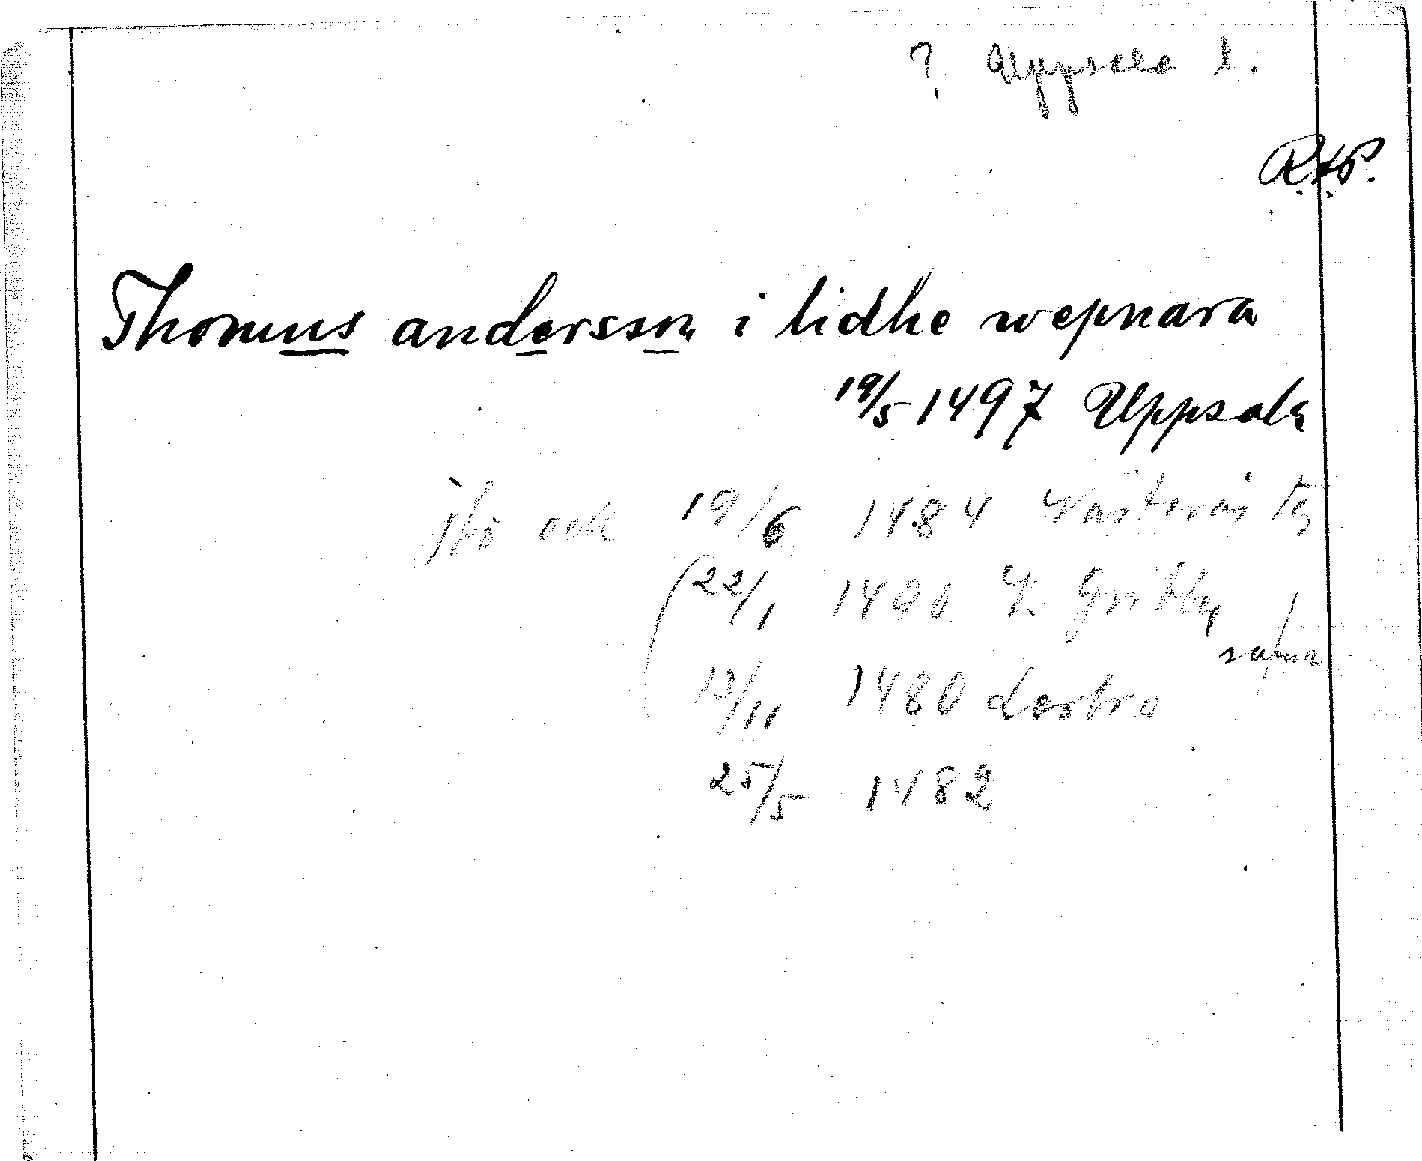 ? Uppsala l.
R.A.P.
Thomus andersson i lidhe wepnara
19/5 1497 Uppsala
Jfr och 19/6 1484 Västerås tg
(22/1 1490 V. Gritby
samma
13/11 1480 Lostra
25/5 1482